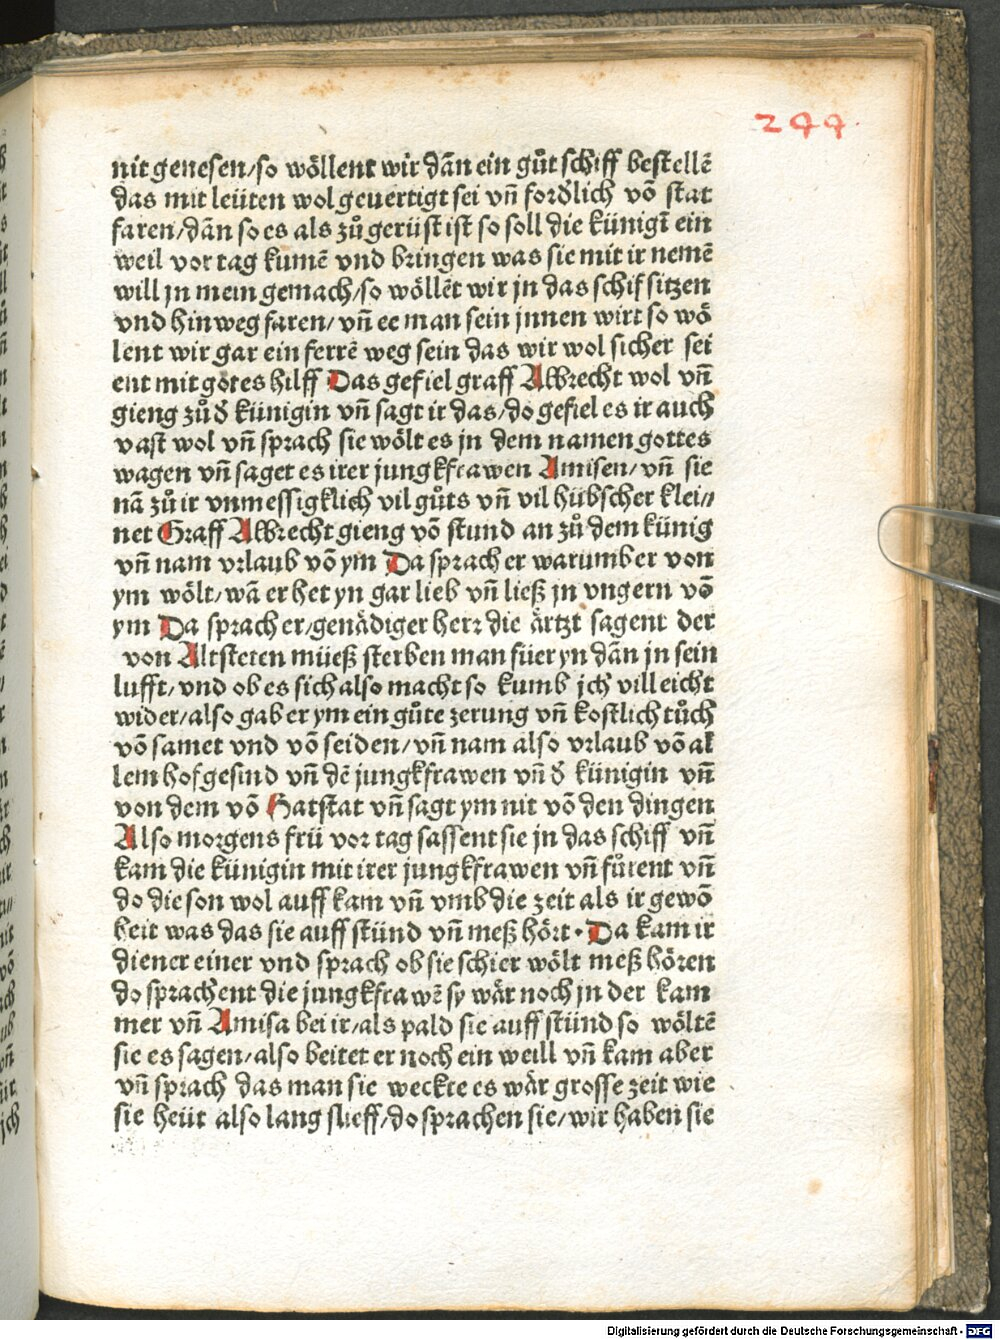 244
nit genesen/so wöllent wir dañ ein gůt schiff bestellē
das mit leüten wol geuertigt sei vñ fordlich vō stat
faren/dañ so es als zů gerüst ist so soll die künigī ein
weil vor tag kumē vnd bringen was sie mit ir nemē
will jn mein gemach/so wöllēt wir jn das schif sitzen
vnd hinweg faren/vñ ee man sein jnnen wirt so wö
lent wir gar ein ferrē weg sein das wir wol sicher sei
ent mit gotes hilff Das gefiel graff Albrecht wol vñ
gieng zů đ künigin vñ sagt ir das/do gefiel es ir auch
vast wol vñ sprach sie wölt es jn dem namen gottes
wagen vñ saget es irer jungkfrawen Amisen/vñ sie
nā zů ir vnmessigklich vil gůts vñ vil hübscher klei//
net Graff Albrecht gieng vō stund an zů dem künig
vñ nam vrlaub vō ym Da sprach er warumb er von
ym wölt/wā er het yn gar lieb vñ ließ jn vngern vō
ym Da sprach er/genādiger herr die ärtzt sagent der
von Altsteten müeß sterben man füer yn dañ jn sein
lufft/vnd ob es sich also macht so kumb jch villeicht
wider/also gab er ym ein gůte zerung vñ kostlich tůch
vō samet vnd vō seiden/vñ nam also vrlaub vō al
lem hofgesind vñ dē jungkfrawen vñ đ künigin vñ
von dem vō Hatstat vñ sagt ym nit vō den dingen
Also morgens frü vor tag sassent sie jn das schiff vñ
kam die künigin mit irer jungkfrawen vñ fůrent vñ
do die son wol auff kam vñ vmb die zeit als ir gewō
heit was das sie auff stünd vñ meß hört · Da kam ir
diener einer vnd sprach ob sie schier wölt meß hören
do sprachent die jungkfrawē sy wär noch jn der kam
mer vñ Amisa bei ir/als pald sie auff stünd so wöltē
sie es sagen/also beitet er noch ein weill vñ kam aber
vñ sprach das man sie weckte es wär grosse zeit wie
sie heüt also lang slieff/do sprachen sie/wir haben sie
Digitalisierung gefördert durch die Deutsche Forschungsgemeinschaft - DFG